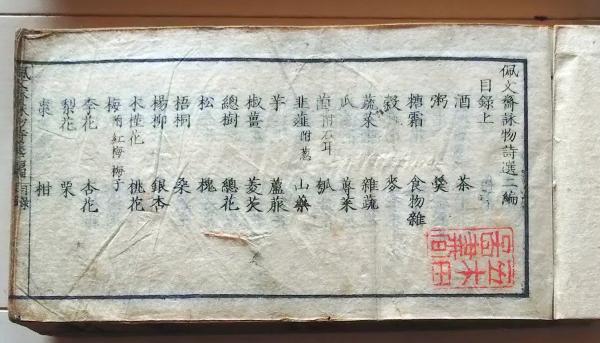 佩文齋詠物詩選二編
目錄上
酒 茶
粥 羹
糖霜 食物雜
穀 麥
蔬菜 雜蔬
瓜 蓴菜
菌附石耳 瓠
韭薤附蔥 山藥
芋 蘆菔
椒薑 菱芡
總樹 總花
松 槐
梧桐 桑
楊柳 銀杏
木槿花 桃花
梅附紅梅 梅子
李花 杏花
梨花 栗
棗 柑